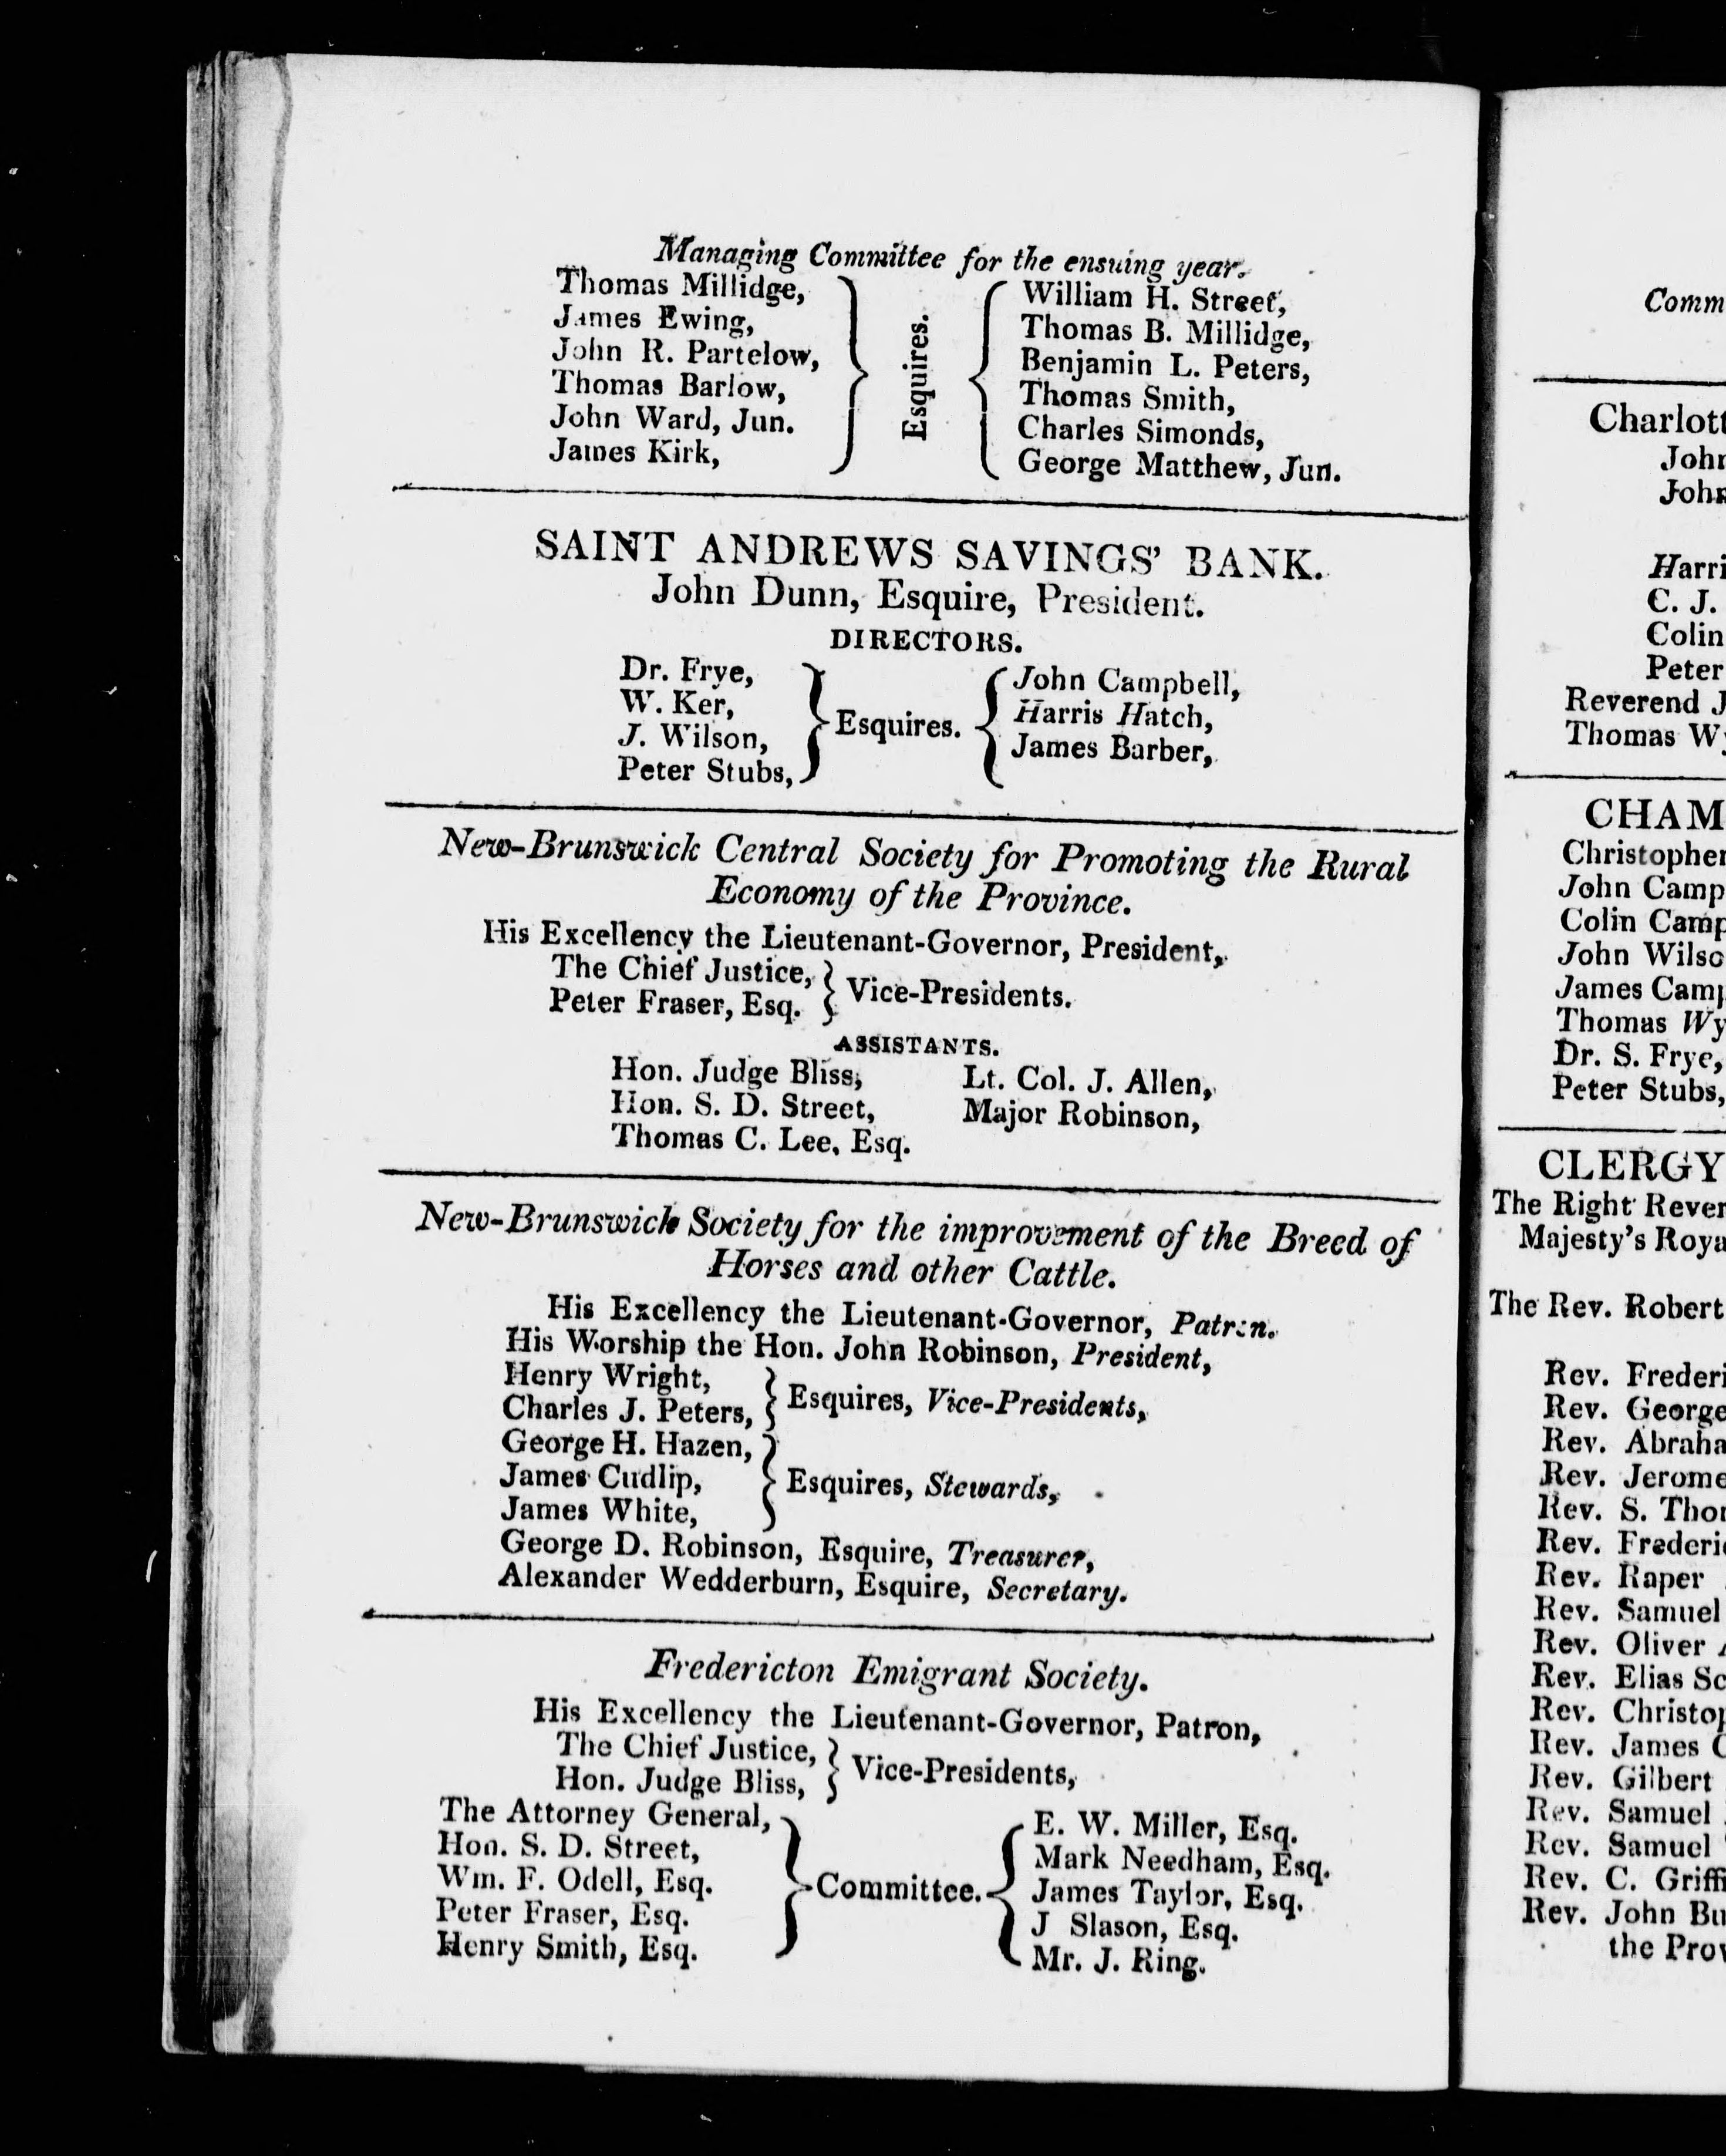 Managing Committee for the ensuing year.
Thomas Millidge,
James Ewing,
John R. Partelow,
Thomas Barlow,
John Ward, Jun.
James Kirk,
Esquires.
William H. Street,
Thomas B. Millidge,
Benjamin L. Peters,
Thomas Smith,
Charles Simonds,
George Matthew, Jun.
SAINT ANDREWS SAVINGS' BANK.
John Dunn, Esquire, President.
DIRECTORS.
Dr. Frye,
W. Ker,
J. Wilson,
Peter Stubs,
Esquires.
John Campbell,
Harris Hatch,
James Barber,
New-Brunswick Central Society for Promoting the Rural
Economy of the Province.
His Excellency the Lieutenant-Governor, President,
The Chief Justice,
Peter Fraser, Esq.
Vice-Presidents.
ASSISTANTS.
Hon. Judge Bliss,
Hon. S. D. Street,
Thomas C. Lee, Esq.
Lt. Col. J. Allen,
Major Robinson,
New-Brunswick Society for the improvement of the Breed of
Horses and other Cattle.
His Excellency the Lieutenant-Governor, Patron.
His Worship the Hon. John Robinson, President,
Henry Wright,
Charles J. Peters,
Esquires, Vice-Presidents,
George H. Hazen,
James Cudlip,
James White,
Esquires, Stewards,
George D. Robinson, Esquire, Treasurer,
Alexander Wedderburn, Esquire, Secretary.
Fredericton Emigrant Society.
His Excellency the Lieutenant-Governor, Patron,
The Chief Justice,
Hon. Judge Bliss,
Vice-Presidents,
The Attorney General,
Hon. S. D. Street,
Wm. F. Odell, Esq.
Peter Fraser, Esq.
Henry Smith, Esq.
Committee.
E. W. Miller, Esq.
Mark Needham, Esq.
James Taylor, Esq.
J Slason, Esq.
Mr. J. Ring.
Comm
Charlott
John
John
Harri
C. J.
Colin
Peter
Reverend J
Thomas Wy
CHAM
Christopher
John Camp
Colin Camp
John Wilso
James Camp
Thomas Wy
Dr. S. Frye,
Peter Stubs,
CLERGY
The Right Rever
Majesty's Roya
The Rev. Robert
Rev. Frederi
Rev. George
Rev. Abraha
Rev. Jerome
Rev. S. Thom
Rev. Frederi
Rev. Raper
Rev. Samuel
Rev. Oliver A
Rev. Elias Sc
Rev. Christop
Rev. James C
Rev. Gilbert
Rev. Samuel
Rev. Samuel
Rev. C. Griffi
Rev. John Bu
the Prov